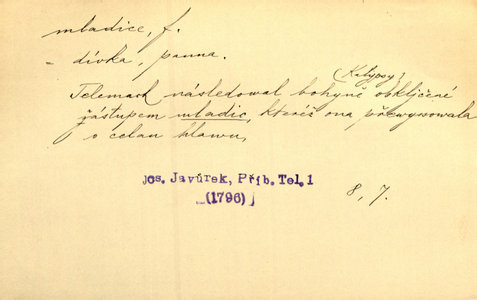 mladice, f.
= dívka, panna.
(Kalypsy)
Telemach následowal bohyně obkljčené
zástupem mladic, kteréž ona přewyssowala
o celau hlawu,
Jos. Javůrek, Příb. Tel. 1
(1796)
8, 7.